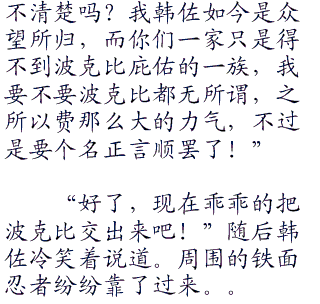 不清楚吗？我韩佐如今是众
望所归，而你们一家只是得
不到波克比庇佑的一族，我
要不要波克比都无所谓，之
所以费那么大的力气，不过
是要个名正言顺罢了！”
“好了，现在乖乖的把
波克比交出来吧！”随后韩
佐冷笑着说道。周围的铁面
忍者纷纷靠了过来。。